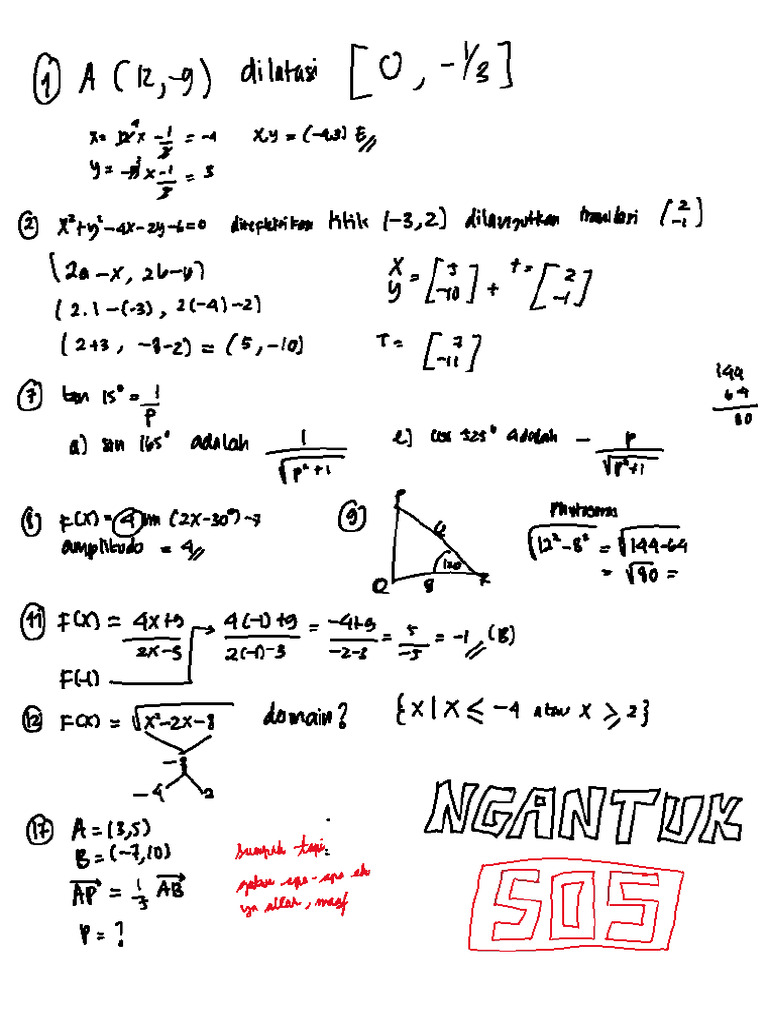 ① A (12, -9) dilatasi [0, -1/3]
x = 12 x -1/3 = -4 x,y = (-4,3) E //
y = -9 x -1/3 = 3
② x²+y²-4x-2y-6=0 direfleksikan titik (-3,2) dilanjutkan translasi (2 -1)
(2a-x, 2b-y)
(2.1-(-3), 2(-4)-2)
(2+3, -8-2) = (5, -10)
x y = [5 -10] + t = [2 -1]
T = [7 -11]
⑦ tan 15° = 1/p
a) sin 165° adalah 1/√p²+1
e) cos 525° adalah - p/√p²+1
144
64
80
⑧ F(x) = 4 (2x-30°) →
amplitudo = 4 //
⑨ P
Q 8 R
120
√12²-8² = √144-64
= √80 =
⑪ F(x) = 4x+9/2x-3 → 4(-1)+9/2(-1)-3 = -4+9/-2-3 = 5/-5 = -1 // (B)
F(-1)
⑫ F(x) = √x²-2x-8 domain? {x | x ≤ -4 atau x ≥ 2}
-8
-4 2
⑰ A = (3,5)
B = (-7,10)
AP = 1/3 AB
P = ?
sumpah tapi
apa-apa
ya allah, maaf
NGANTUK
SOS